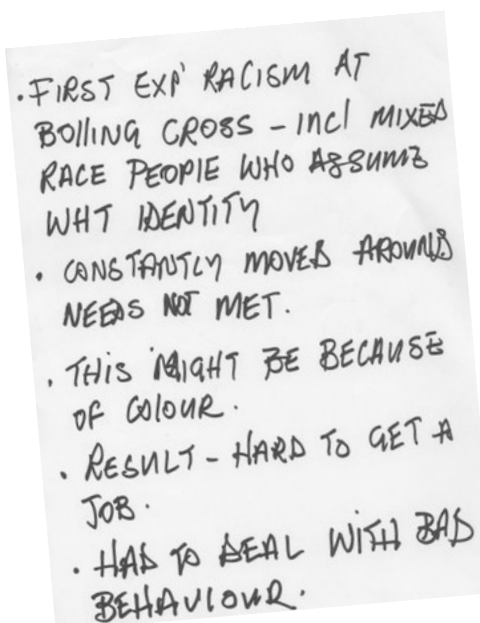 • FIRST EXP' RACISM AT
BOLLING CROSS - INCL MIXED
RACE PEOPLE WHO ASSUME
WHT IDENTITY
• CONSTANTLY MOVED AROUND
NEEDS NOT MET.
• THIS MIGHT BE BECAUSE
OF COLOUR.
• RESULT - HARD TO GET A
JOB.
• HAD TO DEAL WITH BAD
BEHAVIOUR.